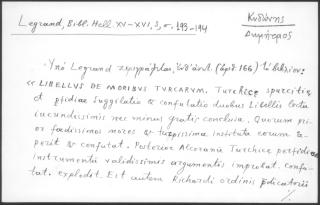 Legrand, Bibl. Hell. XV-XVI, 3, σ. 193-194
Κυδώνης
Δημήτριος
Ὑπό Legrand
166) τό
« LIBELLUS DE MORIBUS TURCARUM. Turchice spurcitię
et pfidiae suggilatio & confutatio duobus libellis lectu
iucundissimis nec minus gratis conclusa. Quorum pri-
or foedissimos mores & turpissima instituta eorum a-
perit & confutat. Posterior Alcoranum Turchice perfidiae
instrumentū validissimis argumentis improbat. Confu-
tat. explodit. Est autem Richardi ordinis pdicatoriū
»